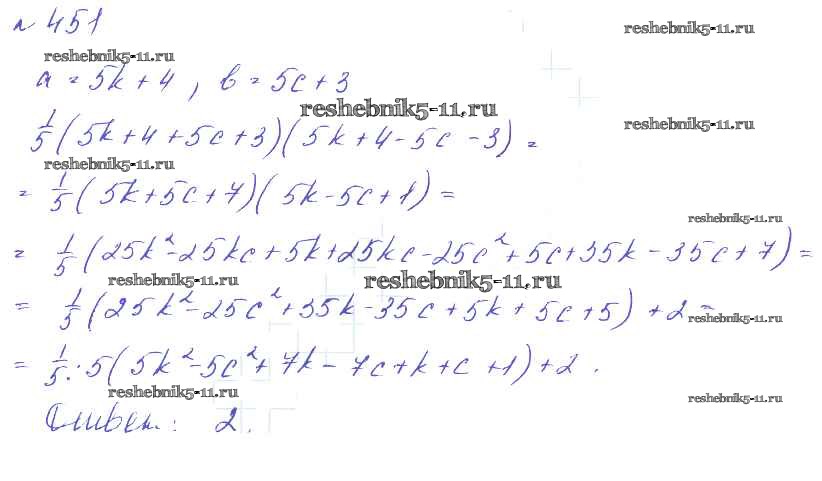 № 451
reshebnik5-11.ru
reshebnik5-11.ru
a = 5k + 4, b = 5c + 3
reshebnik5-11.ru
1/5 (5k + 4 + 5c + 3)(5k + 4 - 5c - 3) =
reshebnik5-11.ru
reshebnik5-11.ru
= 1/5 (5k + 5c + 7)(5k - 5c + 1) =
reshebnik5-11.ru
= 1/5 (25k² - 25kc + 5k + 25kc - 25c² + 5c + 35k - 35c + 7) =
reshebnik5-11.ru
reshebnik5-11.ru
= 1/5 (25k² - 25c² + 35k - 35c + 5k + 5c + 5) + 2 =
reshebnik5-11.ru
= 1/5 · 5(5k² - 5c² + 7k - 7c + k + c + 1) + 2.
reshebnik5-11.ru
reshebnik5-11.ru
Ответ: 2.